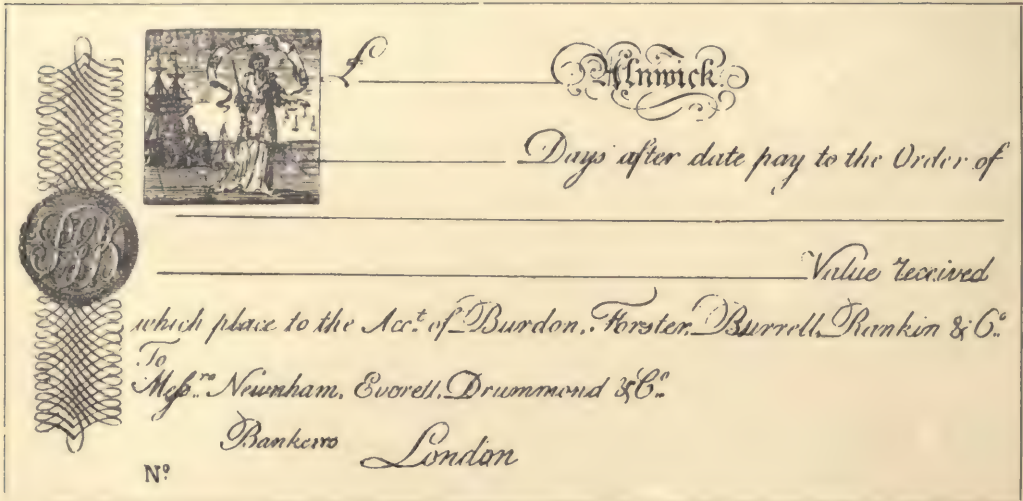 £ Alnwick
Days after date pay to the Order of
Value received
which place to the Acct. of Burdon, Forster, Burrell, Rankin & Co.
To
Messrs. Newnham, Everell, Drummond & Co.
Bankers London
No.